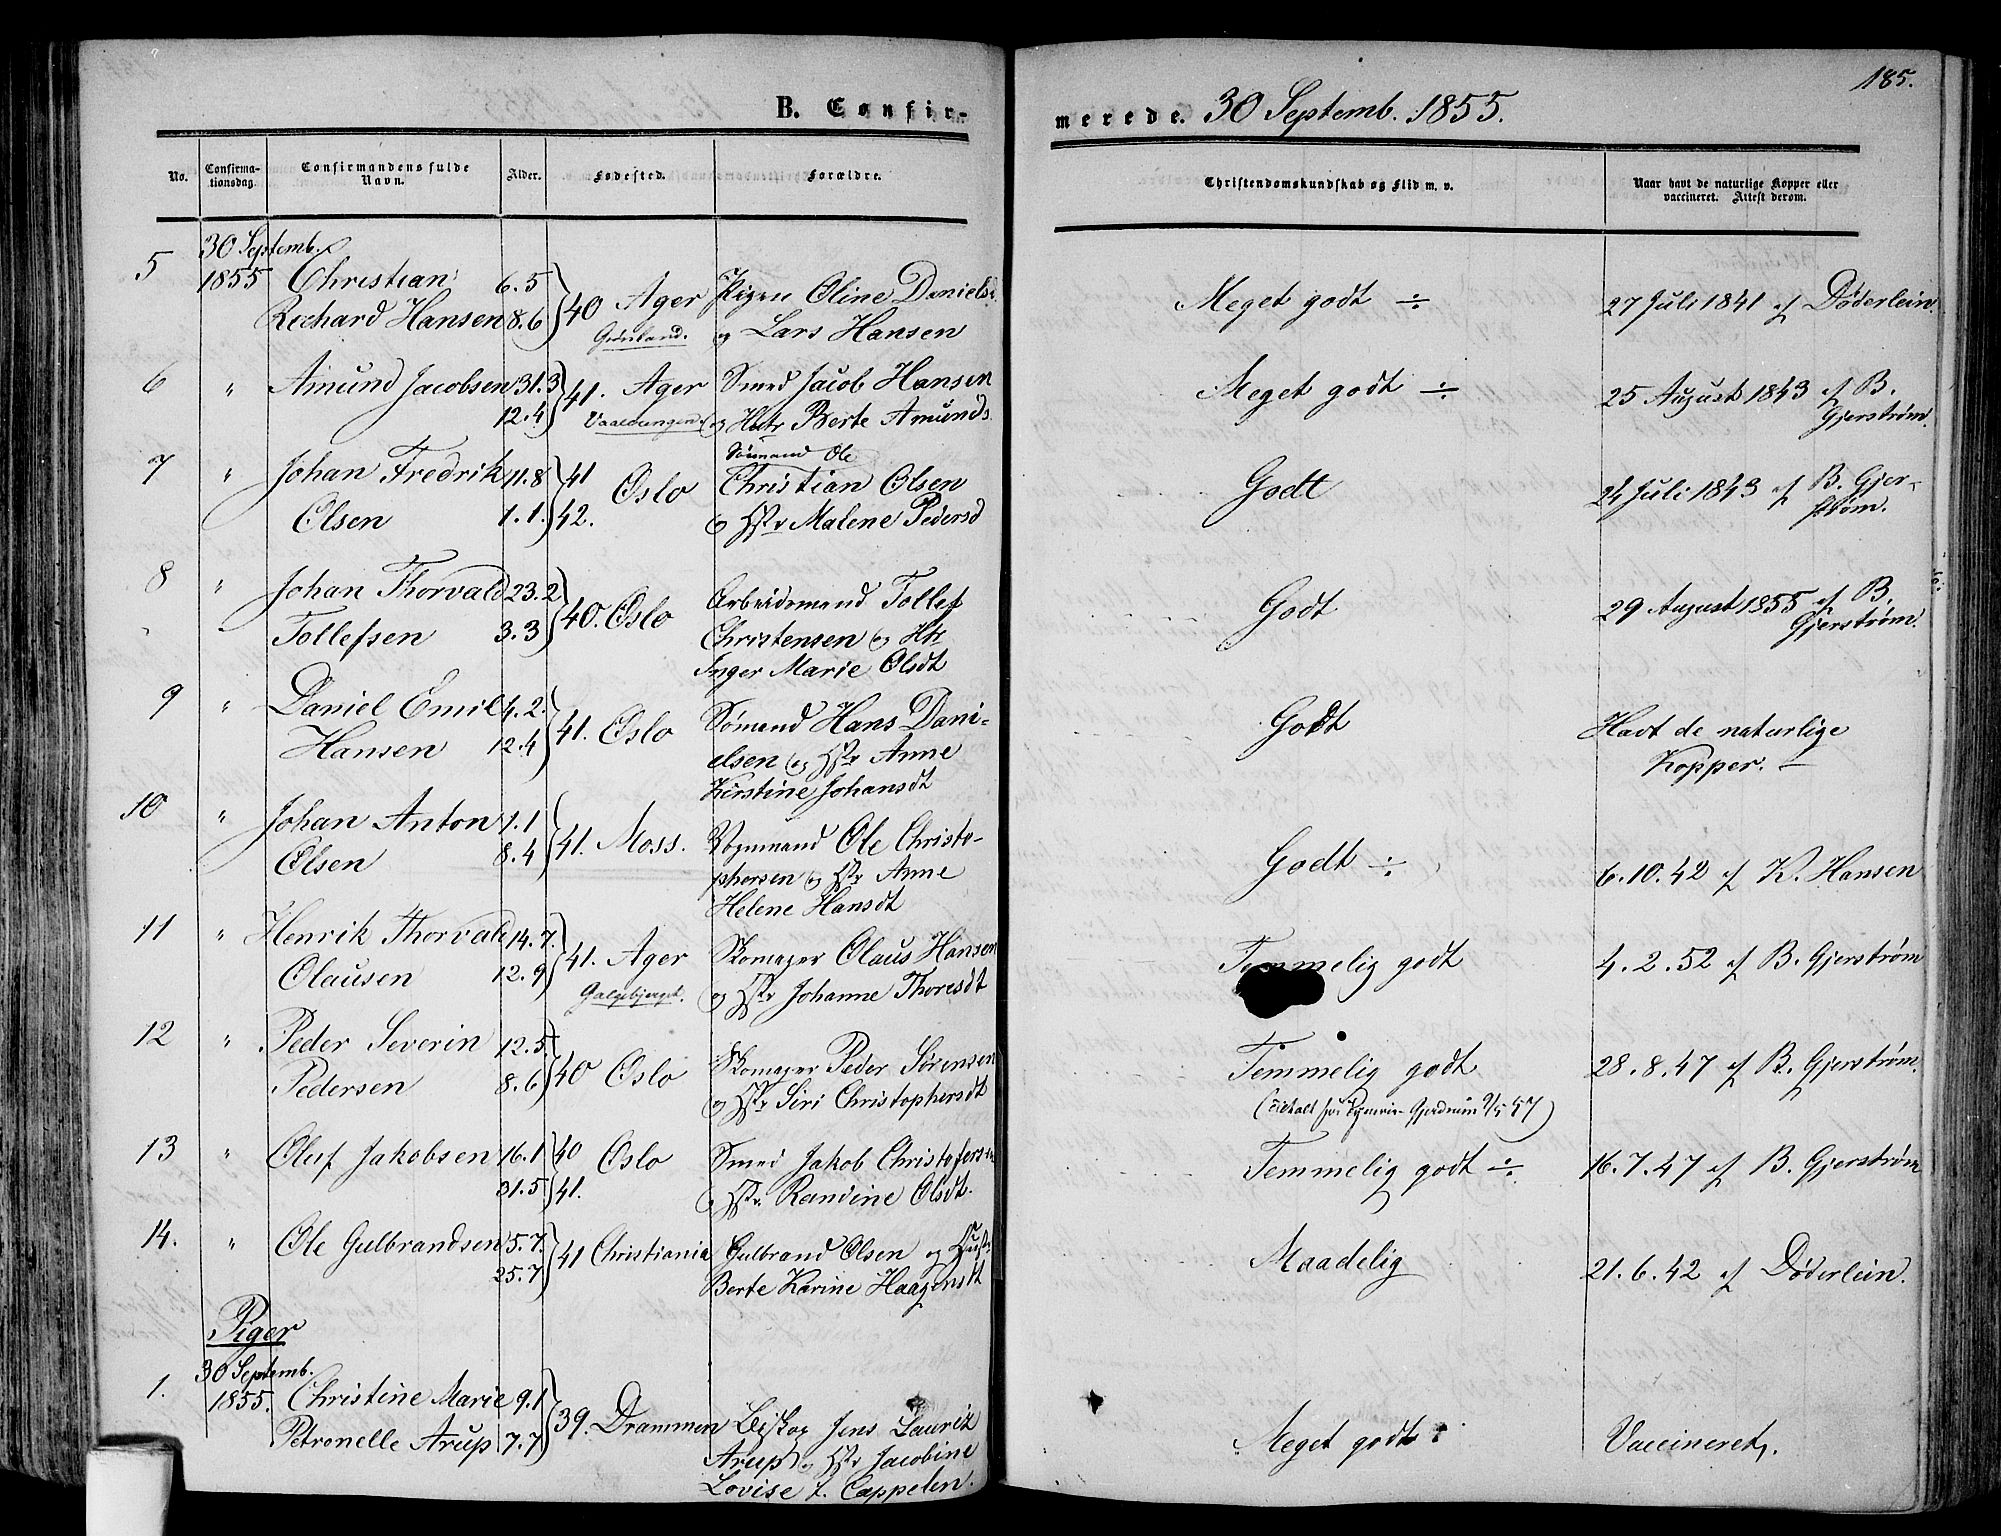 185.
B. Confir-
merede. 30 Septemb. 1855.
No.
Confirma-
tionsdag.
Confirmandens fulde
Navn.
Alder.
Fødested.
Forældre.
Christendomskundskab og Flid m. v.
Naar havt de naturlige Kopper eller
vaccineret. Attest derom.
30 Septemb.
5 1855 Christian 6.5 } 40 Ager Pigen Oline Daniels. Meget godt ÷ 27 Juli 1841 af Døderlein.
Richard Hansen 8.6 Grønland. og Lars Hansen
6 " Amund Jacobsen 31.3 } 41. Ager Smed Jacob Hansen Meget godt ÷ 25 August 1843 af B.
12.4 og Hstr Berte Amunds. Gjerstrøm.
Sømand Ole
7 " Johan Fredrik 11.8 } 41 Oslo Christian Olsen Godt 24 Juli 1843 af B. Gjer-
Olsen 1.1. 42. og Hstr Malene Pedersd strøm.
8 " Johan Thorvald 23.2 } 40. Oslo Arbeidsmand Tollef Godt 29 August 1855 af B.
Tollefsen 3.3 Christensen og Hstr Gjerstrøm.
Inger Marie Olsdt
9 " Daniel Emil 4.2. } 41. Oslo Sømand Hans Dani- Godt Havt de naturlige
Hansen 12.4 elsen og Hstr Anne Kopper. —
Kirstine Johansdt
10 " Johan Anton 1.1 } 41. Moss. Vognmand Ole Christo- Godt ÷ 6.10.42 af K. Hansen
Olsen 8.4 phersen og Hstr Anne
Helene Hansdt
11 " Henrik Thorvald 14.7. } 41. Ager Skomager Olaus Hansen Temmelig godt 4.2.52 af B. Gjerstrøm
Olausen 12.9 Galgebjerget. og Hstr Johanne Thoresdt
12 " Peder Severin 12.5. } 40 Oslo Skomager Peder Sørensen Temmelig godt 28.8.47 af B. Gjerstrøm.
Pedersen 8.6 og Hstr Siri Christophersdt
13 " Oluf Jakobsen 16.1 } 40 Oslo Smed Jakob Christofersen Temmelig godt ÷ 16.7.47 af B. Gjerstrøm
31.5 41. og Hstr. Randine Olsdt.
14. " Ole Gulbrandsen 5.7. } 41 Christiania Gulbrand Olsen og Hustr Maadelig 21.6.42 af Døderlein.
25.7 Berte Karine Haagensdt
Piger
30 Septemb.
1. 1855. Christine Marie 9.1 } 39. Drammen Biskop Jens Lauritz Meget godt Vaccineret.
Petronelle Arup 7.7 Arup og Hstr Jacobine
Lovise f. Cappelen.